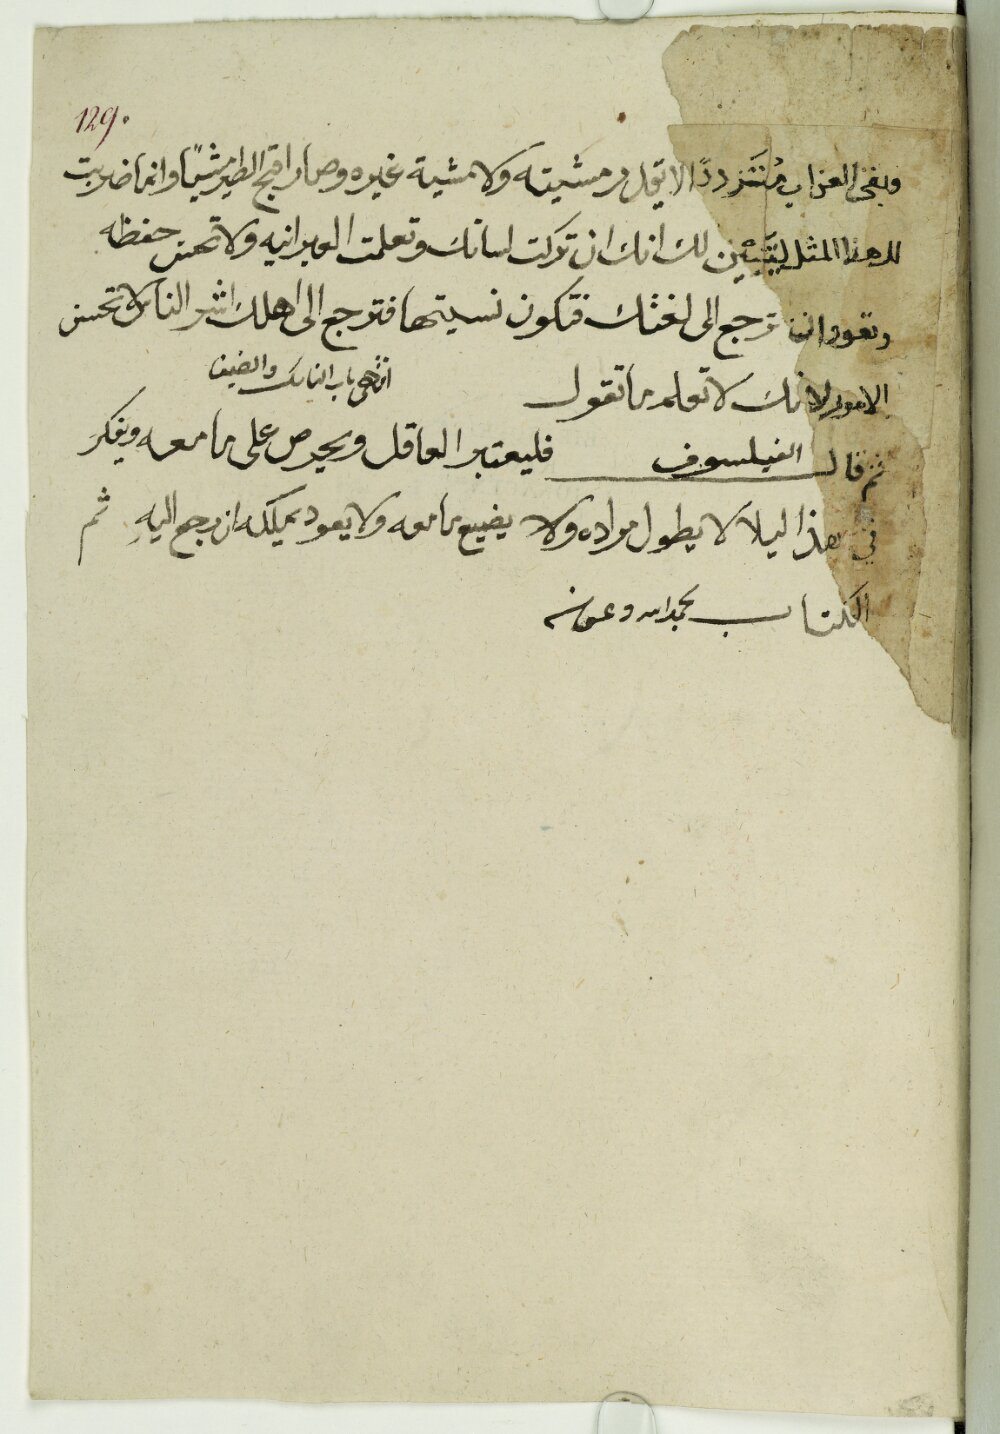 129.
وبقي الغراب متردداً لا يقدر مشيته ولا مشية غيره وصار اقبح الطير مشياً وانما ضربت
لك هذا المثل ليتبين لك انك ان تركت لسانك وتعلمت العبرانيه ولا تحسن حفظه
وتعود ان ترجع الى لغتك فتكون نسيتها فترجع الى اهلك اشر الناس لا تحسن
الامور لانك لا تعلم ما تقول انقضى باب الناسك والضيف
ثم قال الفيلسوف فليعتبر العاقل ويحرص على ما معه ويفكر
في هذا ليلا لا يطول مراده ولا يضيع ما معه ولا يعود يملكه ان رجع اليه تم
الكتاب بحمد الله وعونه